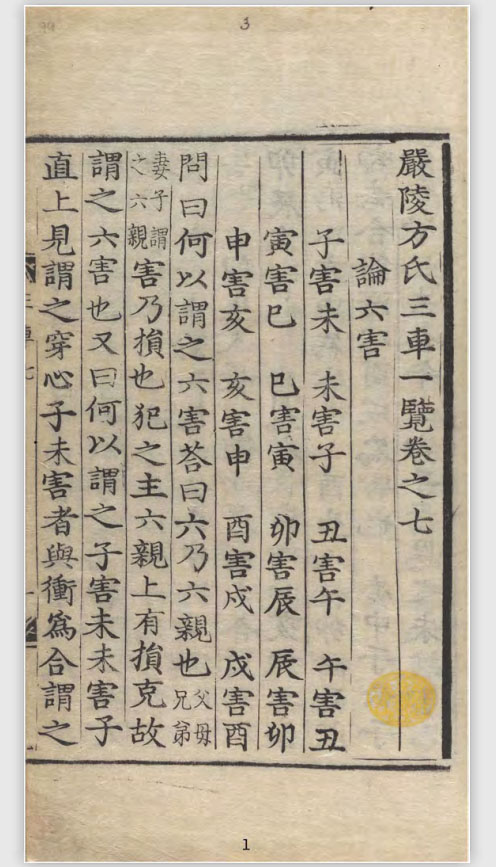 3
嚴陵方氏三車一覽卷之七
論六害
子害未 未害子 丑害午 午害丑
寅害巳 巳害寅 卯害辰 辰害卯
申害亥 亥害申 酉害戍 戍害酉
問曰何以謂之六害荅曰六乃六親也父母兄弟
妻子謂之六親害乃損也犯之主六親上有損克故
謂之六害也又曰何以謂之子害未未害子
直上見謂之穿心子未害者與衝爲合謂之
1